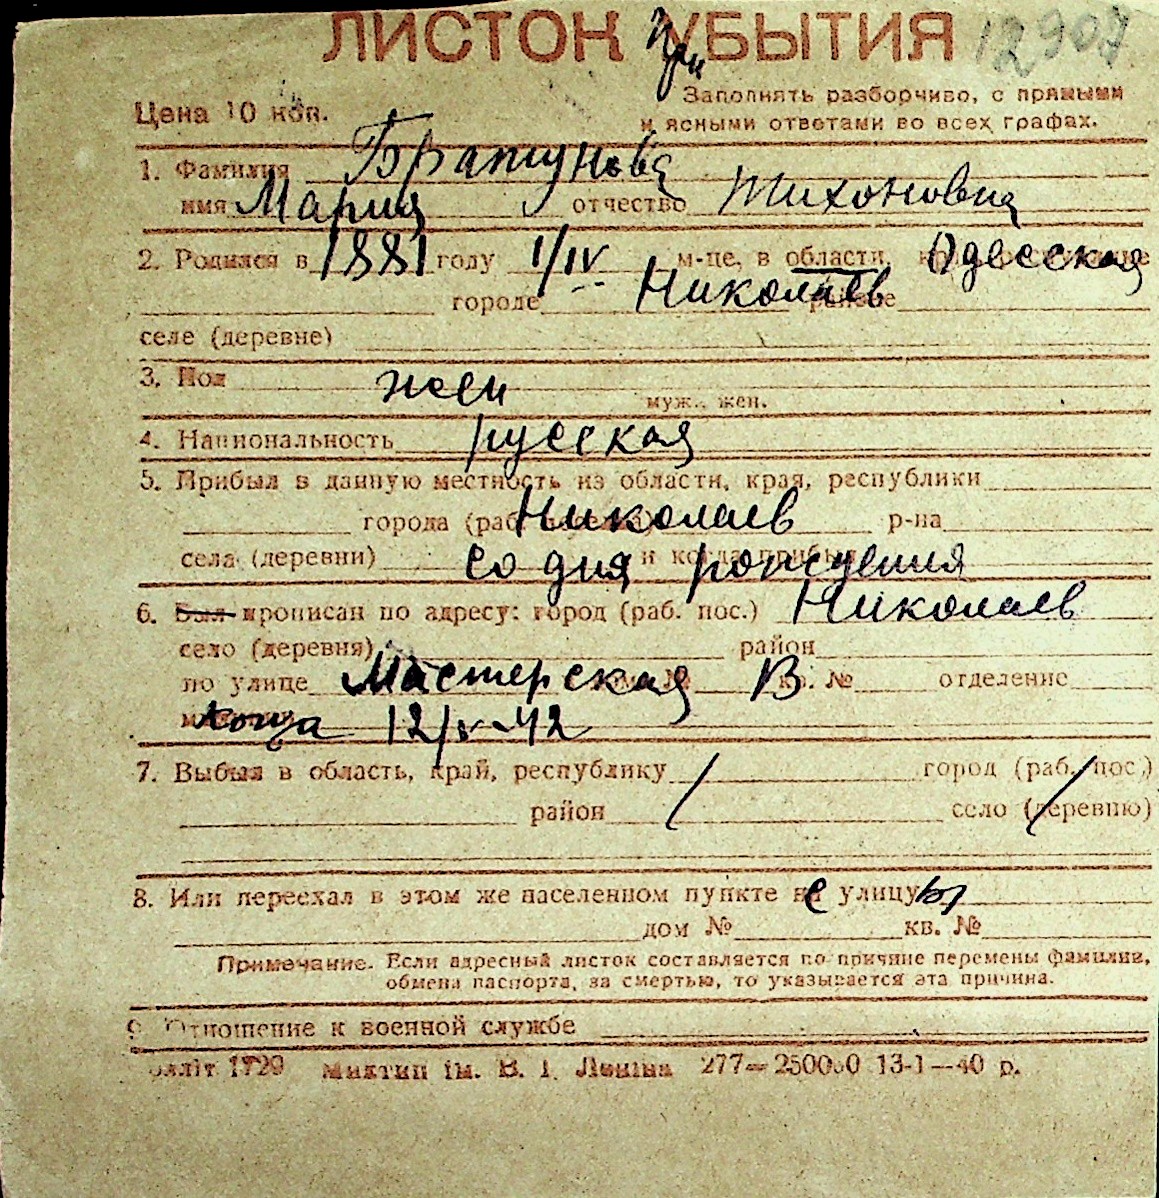 ЛИСТОК УБЫТИЯ При 12907
Цена 10 коп.
Заполнять разборчиво, с прямыми
и ясными ответами во всех графах.
1. Фамилия Братунова
имя Мария отчество Тихоновна
2. Родился в 1881 году 1/IV м-це, в области, Одесская
городе Николаев районе
селе (деревне)
3. Пол жен
муж., жен.
4. Национальность русская
5. Прибыл в данную местность из области, края, республики
города (раб. Николаев р-на
села (деревни) со дня и когда прибыл рождения
6. Был прописан по адресу: город (раб. пос.) Николаев
село (деревня) район
по улице Мастерская № В кв. № отделение
12/V-42
7. Выбыл в область, край, республику город (раб. пос.)
район село (деревню)
8. Или переехал в этом же населенном пункте не улицу
дом № кв. №
Примечание. Если адресный листок составляется по причине перемены фамилии,
обмена паспорта, за смертью, то указывается эта причина.
9. Отношение к военной службе
1729 Миктип ім. В. І. Леніна 277—250000 13-1—40 р.